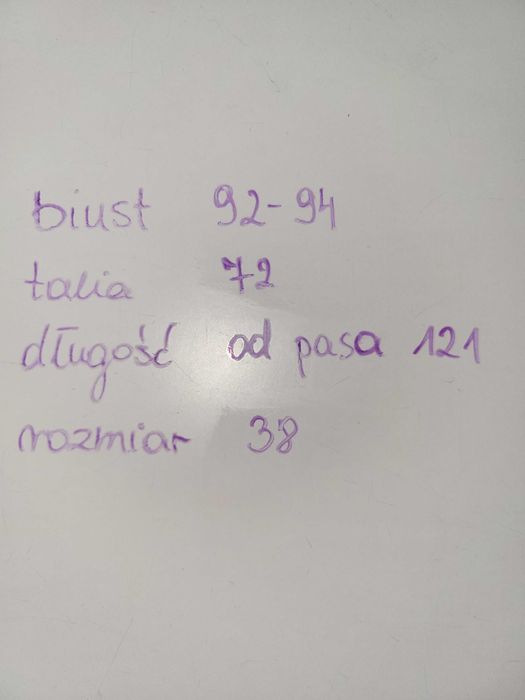 biust 92-94
talia 72
długość od pasa 121
rozmiar 38